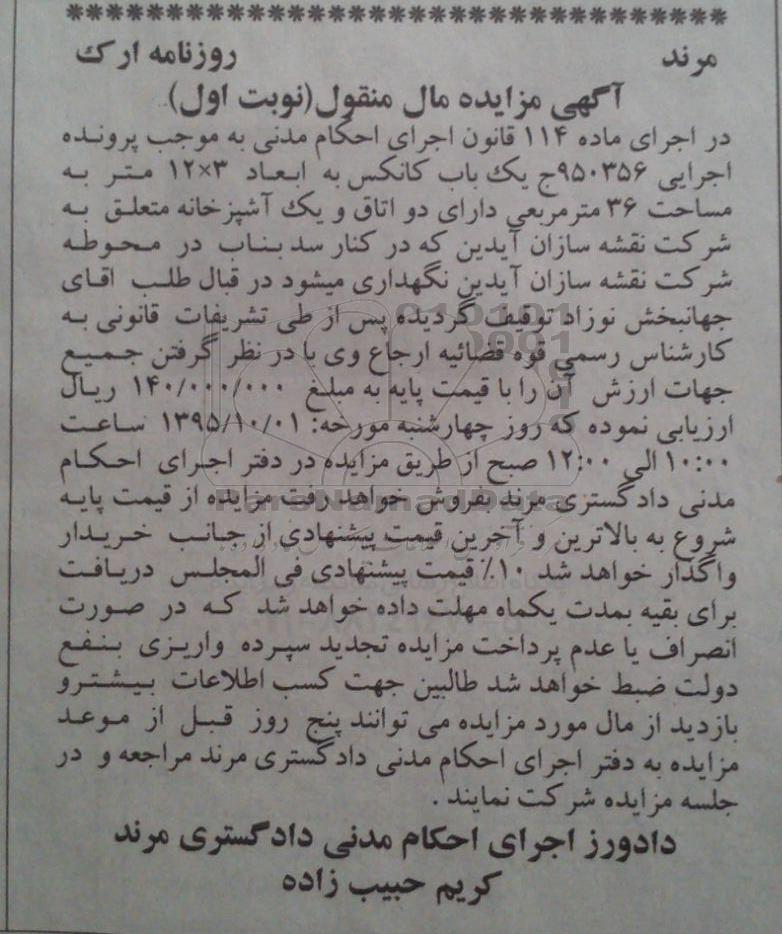 ********************************************
مرند روزنامه ارک
آگهی مزایده مال منقول(نوبت اول)
در اجرای ماده ۱۱۴ قانون اجرای احکام مدنی به موجب پرونده
اجرایی ۹۵۰۳۵۶ج یک باب کانکس به ابعاد ۳×۱۲ متر به
مساحت ۳۶ مترمربعی دارای دو اتاق و یک آشپزخانه متعلق به
شرکت نقشه سازان آیدین که در کنار سد بناب در محوطه
شرکت نقشه سازان آیدین نگهداری میشود در قبال طلب اقای
جهانبخش نوزاد توقیف گردیده پس از طی تشریفات قانونی به
کارشناس رسمی قوه قضائیه ارجاع وی با در نظر گرفتن جمیع
جهات ارزش آن را با قیمت پایه به مبلغ ۱۴۰/۰۰۰/۰۰۰ ریال
ارزیابی نموده که روز چهارشنبه مورخه: ۱۳۹۵/۱۰/۰۱ ساعت
۱۰:۰۰ الی ۱۲:۰۰ صبح از طریق مزایده در دفتر اجرای احکام
مدنی دادگستری مرند بفروش خواهد رفت مزایده از قیمت پایه
شروع به بالاترین و آخرین قیمت پیشنهادی از جانب خریدار
واگذار خواهد شد ۱۰٪ قیمت پیشنهادی فی المجلس دریافت
برای بقیه بمدت یکماه مهلت داده خواهد شد که در صورت
انصراف یا عدم پرداخت مزایده تجدید سپرده واریزی بنفع
دولت ضبط خواهد شد طالبین جهت کسب اطلاعات بیشترو
بازدید از مال مورد مزایده می توانند پنج روز قبل از موعد
مزایده به دفتر اجرای احکام مدنی دادگستری مرند مراجعه و در
جلسه مزایده شرکت نمایند .
دادورز اجرای احکام مدنی دادگستری مرند
کریم حبیب زاده